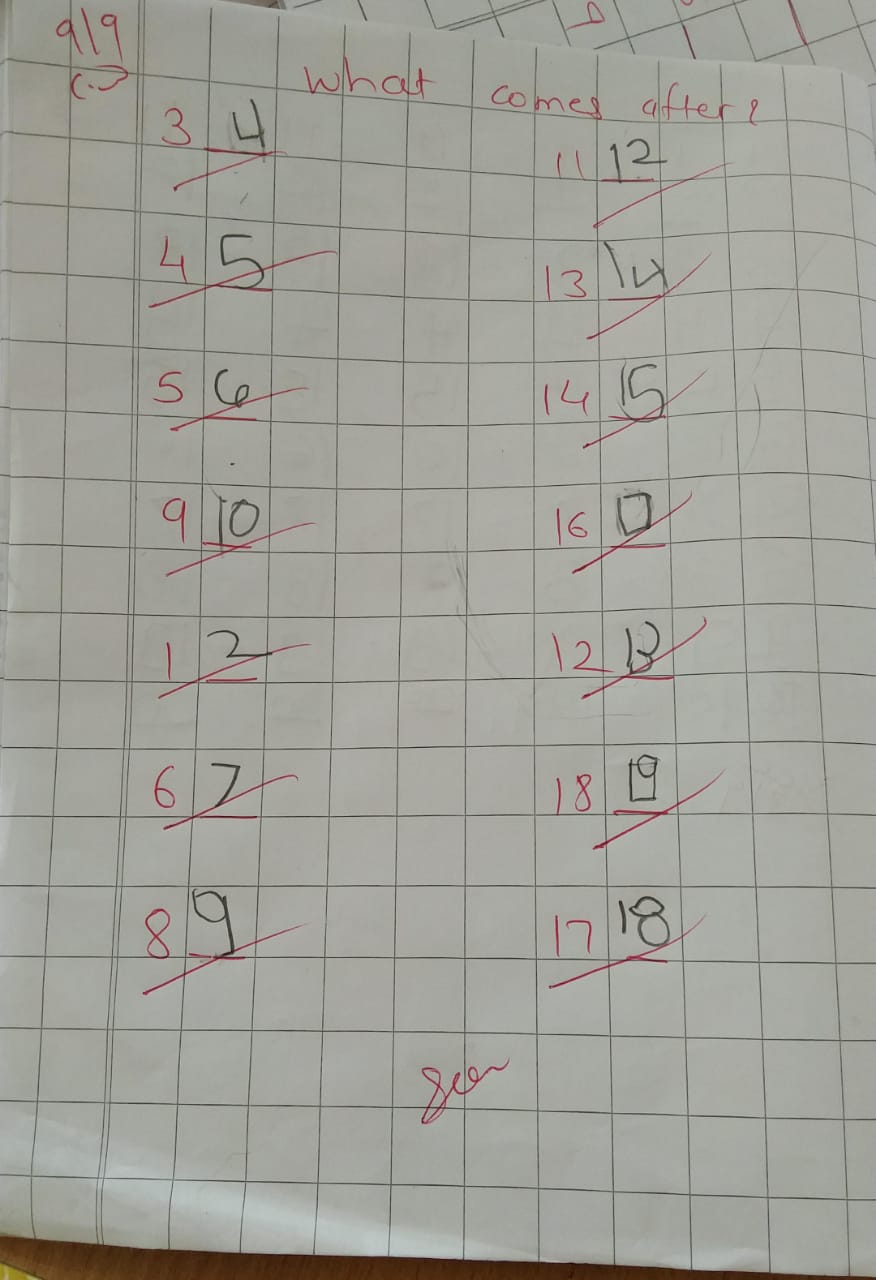 9/9
What comes after?
3 4
11 12
4 5
13 14
5 6
14 15
9 10
16 17
1 2
12 13
6 7
18 19
8 9
17 18
Seen